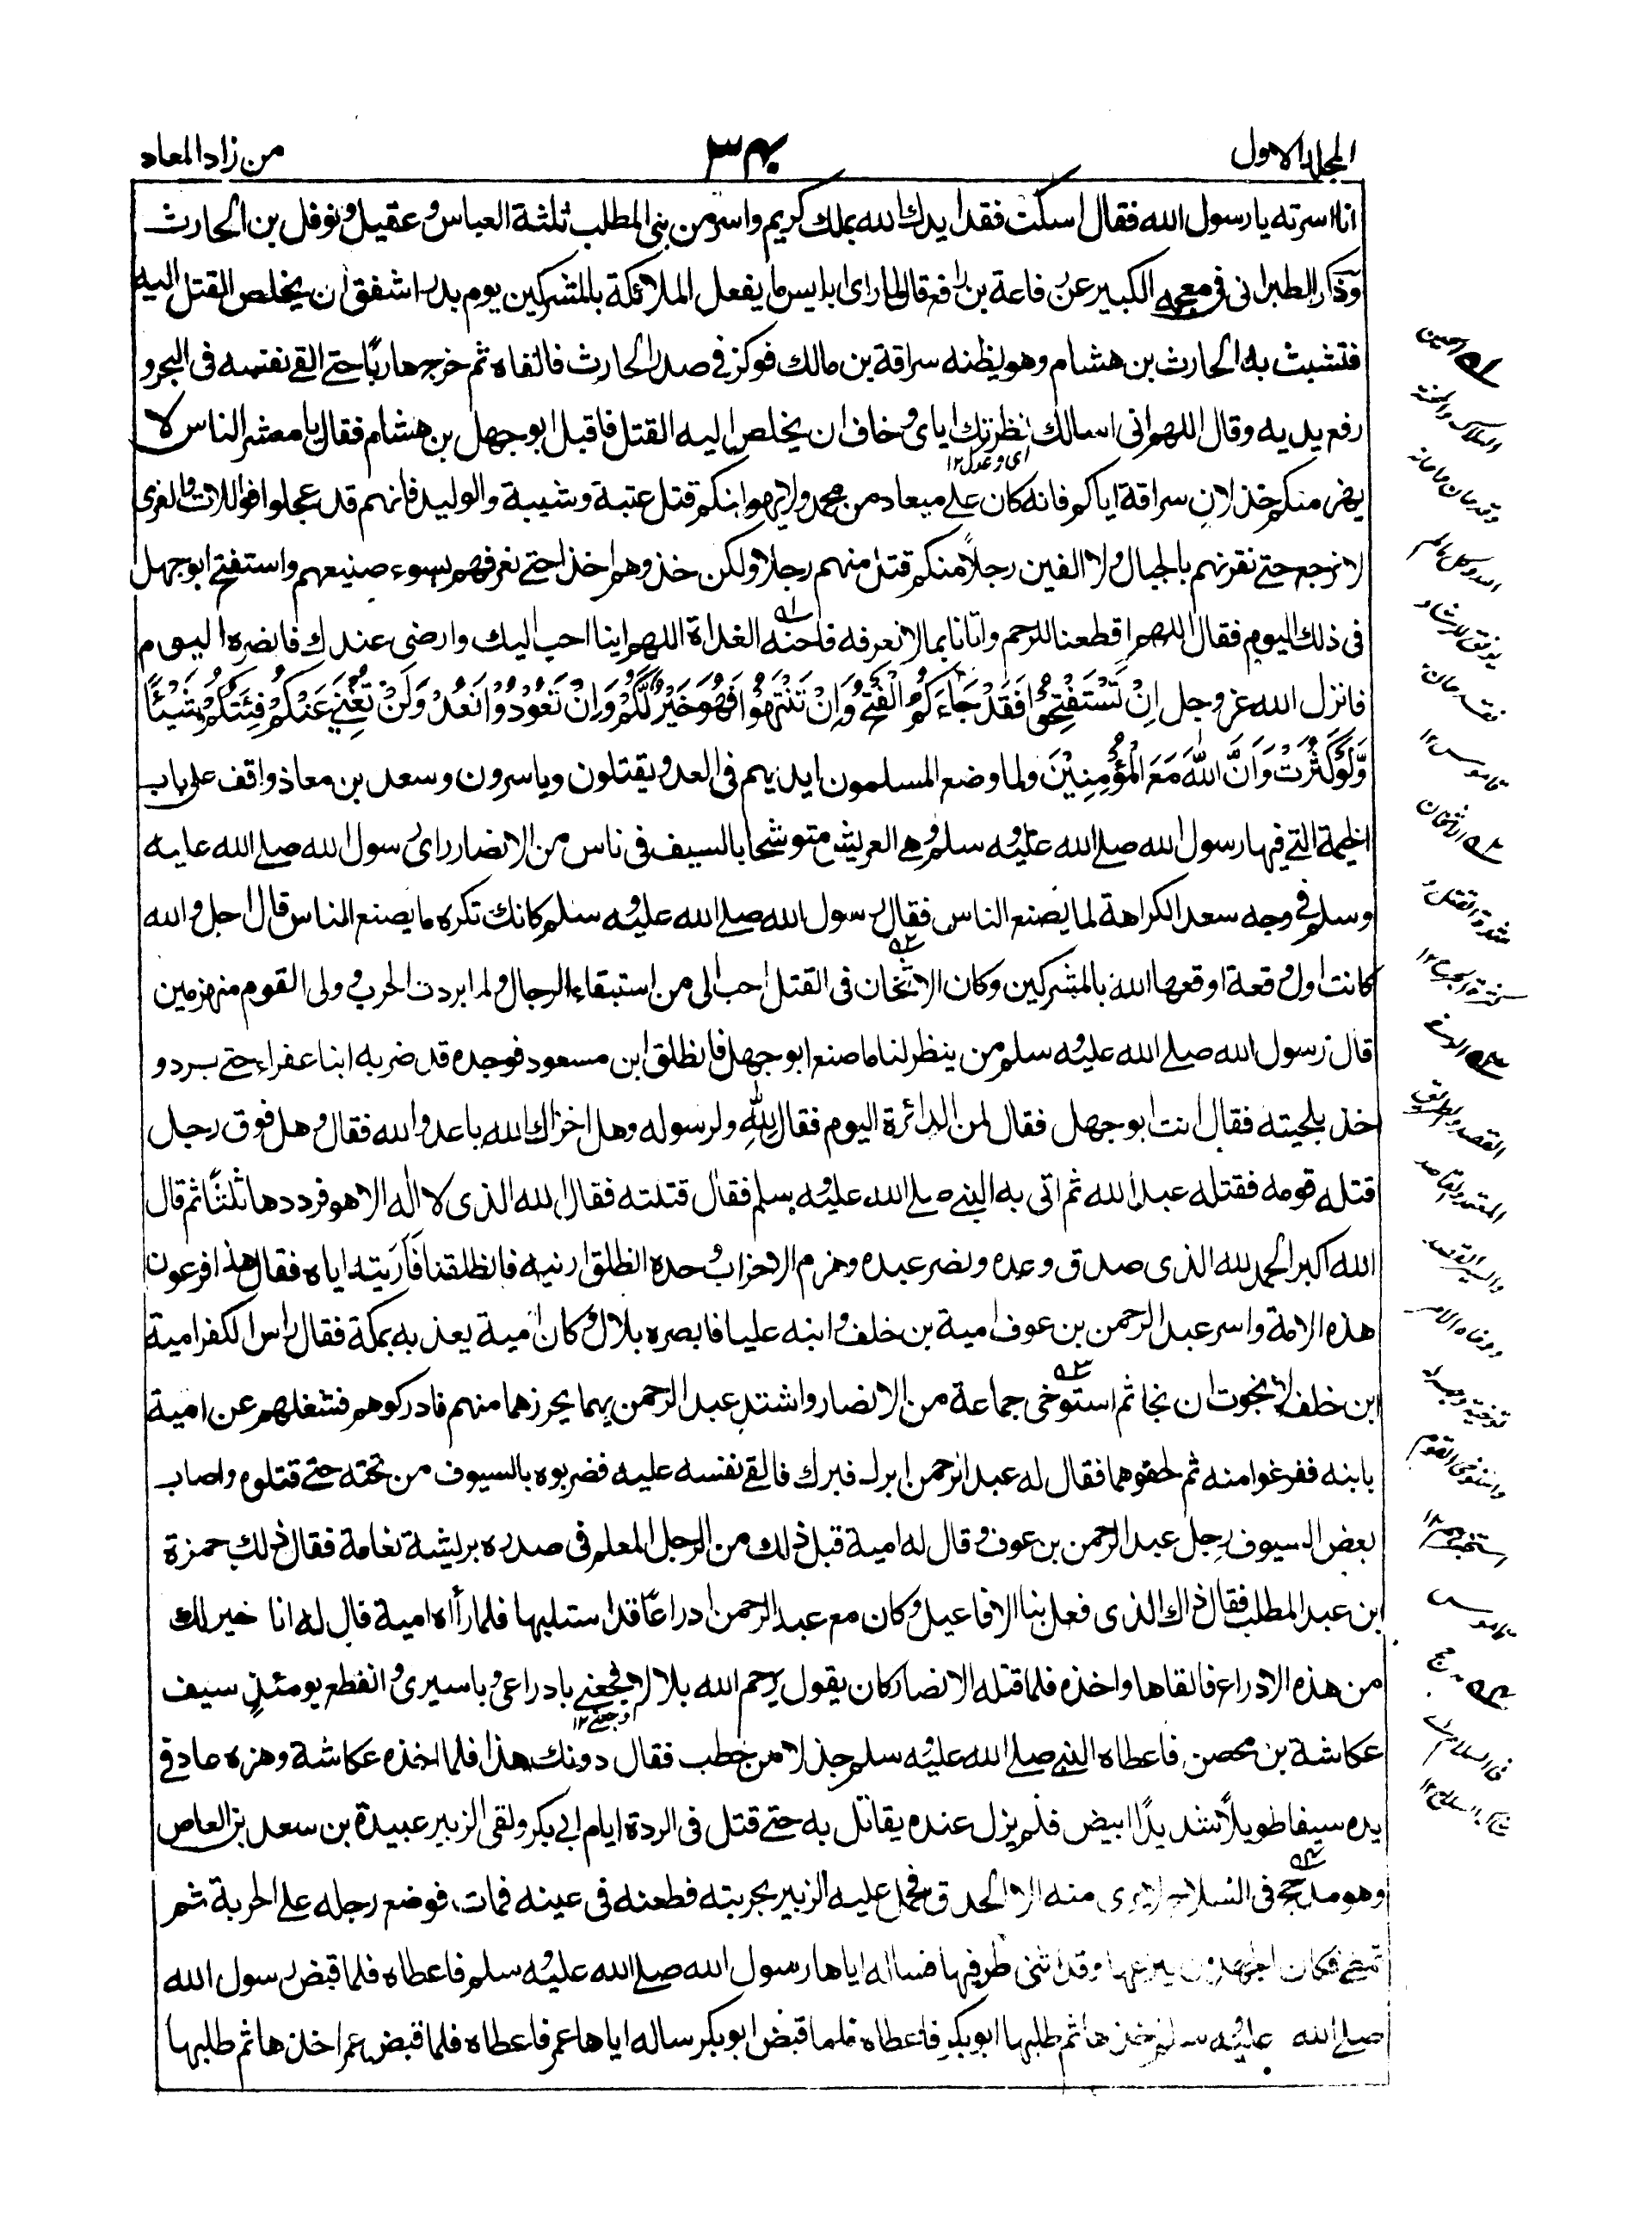 المجلد الاول
٣٤٠
من زاد المعاد
انا اسرته يا رسول الله فقال اسكت فقد ايدك الله بملك كريم واسر من بنى المطلب ثلثة العباس وعقيل ونوفل بن الحارث
وذكر الطبرانى فى معجمه الكبير عن رفاعة بن رافع قال لما راى ابليس ما يفعل الملائكة بالمشركين يوم بدر اشفق ان يخلص القتل اليه
فتشبث به الحارث بن هشام وهو يظنه سراقة بن مالك فوكز فى صدر الحارث فالقاه ثم خرج هاربًا حتى القى نفسه فى البحر و
رفع يديه وقال اللهم انى اسالك نظرتك اياى وخاف ان يخلص اليه القتل فاقبل ابو جهل بن هشام فقال يا معشر الناس لا
اى وعدك ١٢
يهزمنكم خذلان سراقة اياكم فانه كان على ميعاد من محمد ولا يهولنكم قتل عتبة وشيبة والوليد فانهم قد عجلوا فواللات والعزى
لا نرجع حتى نقرنهم بالجبال ولا الفين رجلاً منكم قتل منهم رجلا ولكن خذوهم اخذا حتى نعرفهم بسوء صنيعهم واستفتح ابو جهل
فى ذلك اليوم فقال اللهم اقطعنا للرحم واتانا بما لا نعرفه فاحنه الغداة اللهم اينا احب اليك وارضى عندك فانصره اليوم
فانزل الله عز وجل اِنْ تَسْتَفْتِحُوْا فَقَدْ جَاءَكُمُ الْفَتْحُ وَاِنْ تَنْتَهُوْا فَهُوَ خَيْرٌ لَّكُمْ وَاِنْ تَعُوْدُوْا نَعُدْ وَلَنْ تُغْنِيَ عَنْكُمْ فِئَتُكُمْ شَيْئًا
وَّلَوْ كَثُرَتْ وَاَنَّ اللهَ مَعَ الْمُؤْمِنِيْنَ ولما وضع المسلمون ايديهم فى العدو يقتلون وياسرون وسعد بن معاذ واقف على باب
الخيمة التى فيها رسول الله صلى الله عليه وسلم وهى العريش متوشحا بالسيف فى ناس من الانصار راى رسول الله صلى الله عليه
وسلم فى وجه سعد الكراهة لما يصنع الناس فقال رسول الله صلى الله عليه وسلم كانك تكره ما يصنع الناس قال اجل والله
كانت اول وقعة اوقعها الله بالمشركين وكان الاثخان فى القتل احب الى من استبقاء الرجال ولما بردت الحرب وولى القوم منهزمين
قال رسول الله صلى الله عليه وسلم من ينظر لنا ما صنع ابو جهل فانطلق ابن مسعود فوجده قد ضربه ابنا عفراء حتى برد و
اخذ بلحيته فقال انت ابو جهل فقال لمن الدائرة اليوم فقال لِلّٰهِ ولرسوله وهل اخزاك الله يا عدو الله فقال وهل فوق رجل
قتله قومه فقتله عبد الله ثم اتى به النبى صلى الله عليه وسلم فقال قتلته فقال الله الذى لا اله الا هو فرددها ثلثًا ثم قال
الله اكبر الحمد لله الذى صدق وعده ونصر عبده وهزم الاحزاب وحده انطلق ارنيه فانطلقنا فَاَرَيته اياه فقال هذا فرعون
هذه الامة واسر عبد الرحمن بن عوف امية بن خلف وابنه عليا فابصره بلال وكان امية يعذبه بمكة فقال راس الكفر امية
ابن خلف لا نجوت ان نجا ثم استوخى جماعة من الانصار واشتد عبد الرحمن بهما يحرزهما منهم فادركوهم فشغلهم عن امية
بابنه ففرغوا منه ثم لحقوهما فقال له عبد الرحمن ابرك فبرك فالقى نفسه عليه فضربوه بالسيوف من تحته حتى قتلوه واصاب
بعض السيوف رجل عبد الرحمن بن عوف وقال له امية قبل ذلك من الرجل المعلم فى صدره بريشة نعامة فقال ذلك حمزة
ابن عبد المطلب فقال ذاك الذى فعل بنا الافاعيل وكان مع عبد الرحمن ادراعًا قد استلبها فلما رأاه امية قال له انا خير لك
من هذه الادراع فالقاها واخذه فلما قتله الانصار كان يقول يرحم الله بلالا فجعنى بادراعى وباسيرى وانقطع يومئذٍ سيف
عكاشة بن محصن فاعطاه النبى صلى الله عليه وسلم جذلا من حطب فقال دونك هذا فلما اخذه عكاشة وهزه عاد فى
يده سيفا طويلاً شديدًا ابيض فلم يزل عنده يقاتل به حتى قتل فى الردة ايام ابى بكر ولقى الزبير عبيدة بن سعد بن العاص
وهو مدجج فى السلاح لا يرى منه الا الحدق فحمل عليه الزبير بحربته فطعنه فى عينه فمات فوضع رجله على الحربة ثم
تمطى فكان الجهد ان نزعها وقد انثنى طرفيها فساله اياها رسول الله صلى الله عليه وسلم فاعطاه فلما قبض رسول الله
صلى الله عليه وسلم اخذها ثم طلبها ابو بكر فاعطاه فلما قبض ابو بكر ساله اياها عمر فاعطاه فلما قبض عمر اخذها ثم طلبها
الحين
الهلاك والمحنة
قاموس ١٢
الاثخان
القصد والطريق
واستوخى القوم
استخبرهم ١٢
قاموس